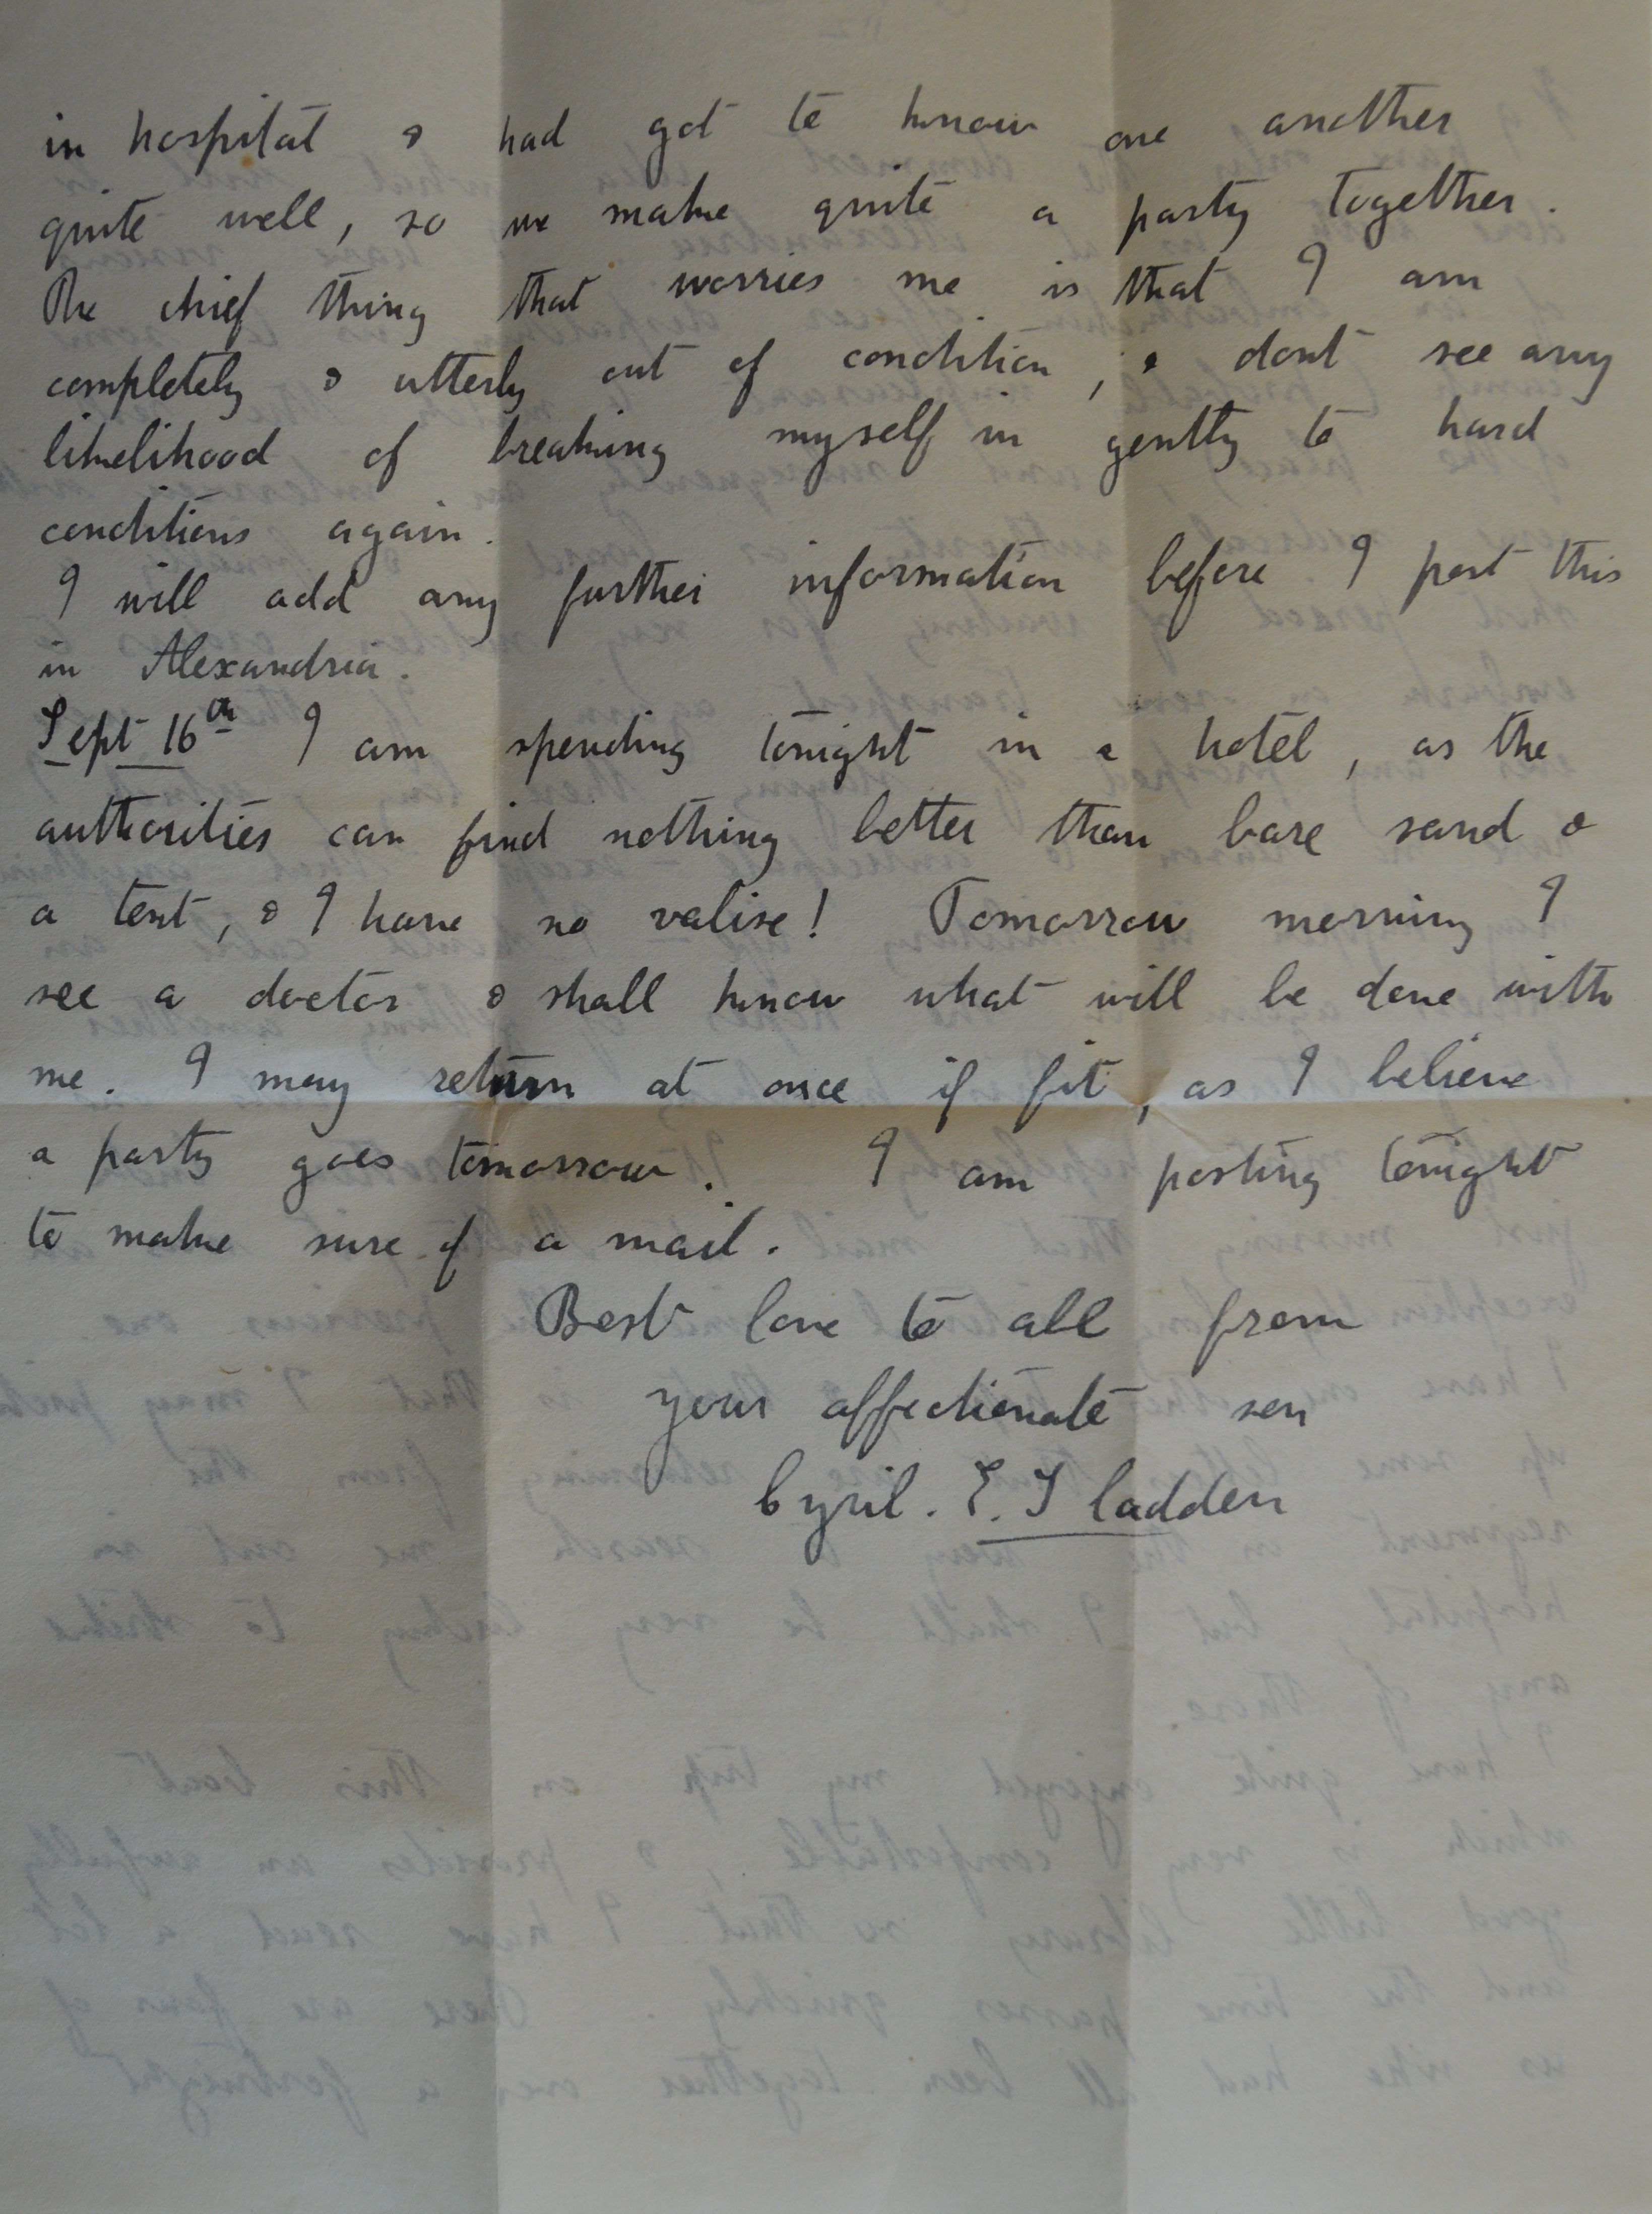 in hospital & had got to know one another
quite well, so we make quite a party together.
The chief thing that worries me is that I am
completely & utterly out of condition, & dont see any
likelihood of breaking myself in gently to hard
conditions again.
I will add any further information before I post this
in Alexandria.
Sept 16th I am spending tonight in a hotel, as the
authorities can find nothing better than bare sand &
a tent, & I have no valise! Tomorrow morning I
see a doctor & shall know what will be done with
me. I may return at once if fit, as I believe
a party goes tomorrow. I am posting tonight
to make sure of a mail.
Best love to all from
your affectionate son
Cyril. E. Sladden